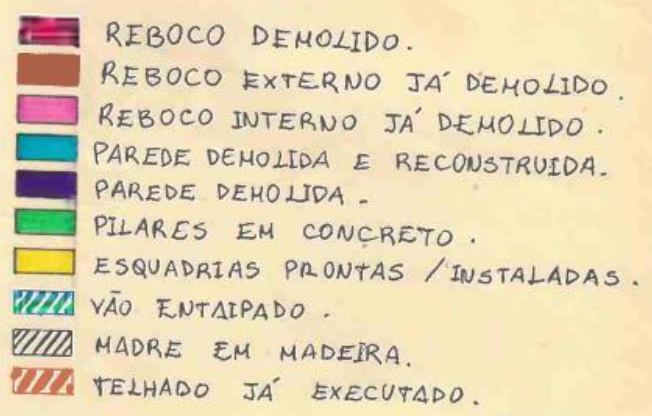 REBOCO DEMOLIDO.
REBOCO EXTERNO JÁ DEMOLIDO.
REBOCO INTERNO JÁ DEMOLIDO.
PAREDE DEMOLIDA E RECONSTRUIDA.
PAREDE DEMOLIDA.
PILARES EM CONCRETO.
ESQUADRIAS PRONTAS / INSTALADAS.
VÃO ENTAIPADO.
MADRE EM MADEIRA.
TELHADO JÁ EXECUTADO.